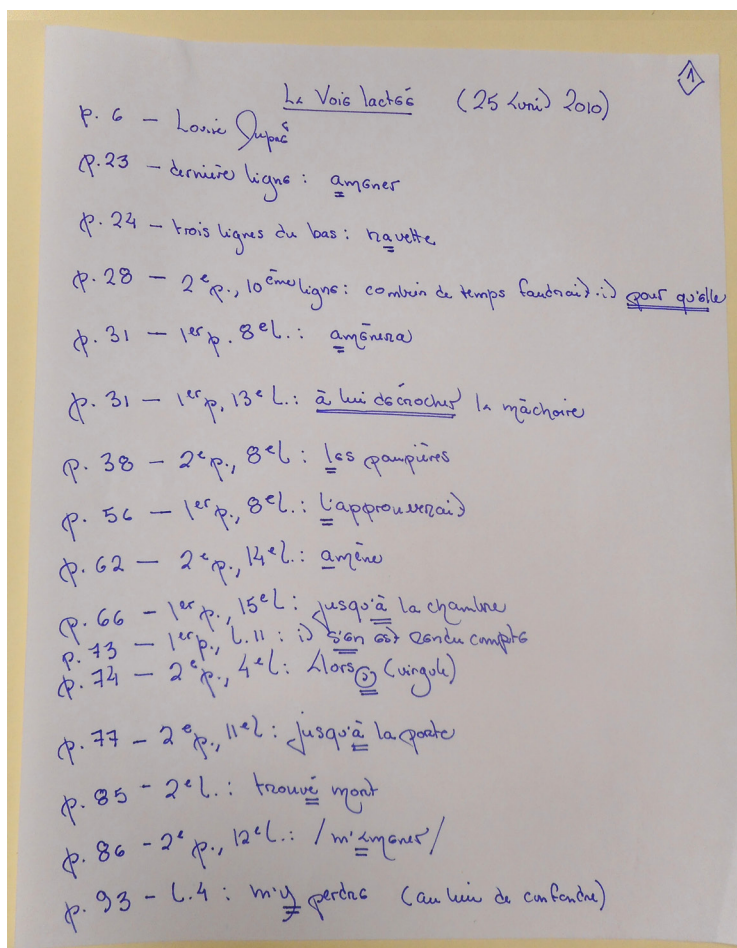 1
La Voie lactée (25 avril 2010)
p. 6 — Louise Dupré
p. 23 — dernière ligne : amener
p. 24 — trois lignes du bas : navette
p. 28 — 2e p., 10ème ligne : combien de temps faudrait-il pour qu'elle
p. 31 — 1er p. 8e l. : amènera
p. 31 — 1er p, 13e l. : à lui décrocher la mâchoire
p. 38 — 2e p., 8e l : les paupières
p. 56 — 1er p., 8e l. : l'approuverait
p. 62 — 2e p., 14e l. : amène
p. 66 — 1er p., 15e l : jusqu'à la chambre
p. 73 — 1er p., l. 11 : il s'en est rendu compte
p. 74 — 2e p., 4e l : Alors , (virgule)
p. 77 — 2e p., 11e l : jusqu'à la porte
p. 85 - 2e l. : trouvé mort
p. 86 - 2e p., 12e l. : /m'amener/
p. 93 — l. 4 : m'y perdre (au lieu de confondre)